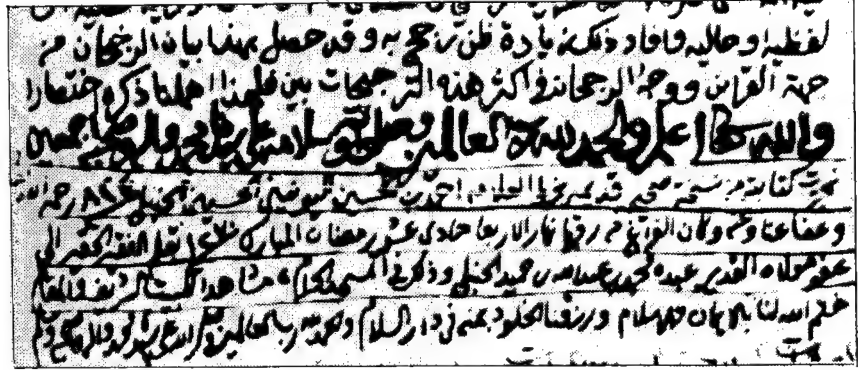 لفظية او حالية فافاد ذلك زيادة ظن رجح به وقد حصل بهذا بيان الرجحان من
جهة القرائن ووجه الرجحان في اكثر هذه الترجيحات بين فلهذا اهملنا ذكره اختصارا
والله تعالى اعلم والحمد لله رب العالمين وصلواته وسلامه على محمد واله وصحبه اجمعين
تمت كتابة من نسخة صحيحة قديمة بخط العلامة احمد بن الحسيني الحنبلي رحمه الله
وعفا عنا وعنه وكان الفراغ من رقمها نهار الاربعا حادي عشر رمضان المبارك بقلم الفقير الحقير الى
عفو مولاه القدير عبده محمد بن عبد الله بن حميد الحنبلي وذكر في المسجد الحرام مشاهدا للبيت الشريف والمقام
ختم الله لنا بالايمان والاسلام ورزقنا الخلود بمنه في دار السلام والحمد لله رب العالمين